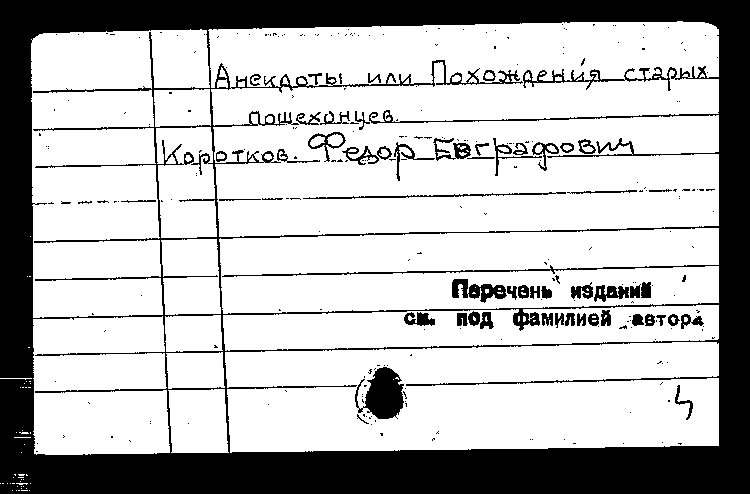 Анекдоты или Похождения старых
пошехонцев.
Коротков. Федор Евграфович
Перечень изданий
см. под фамилией автора